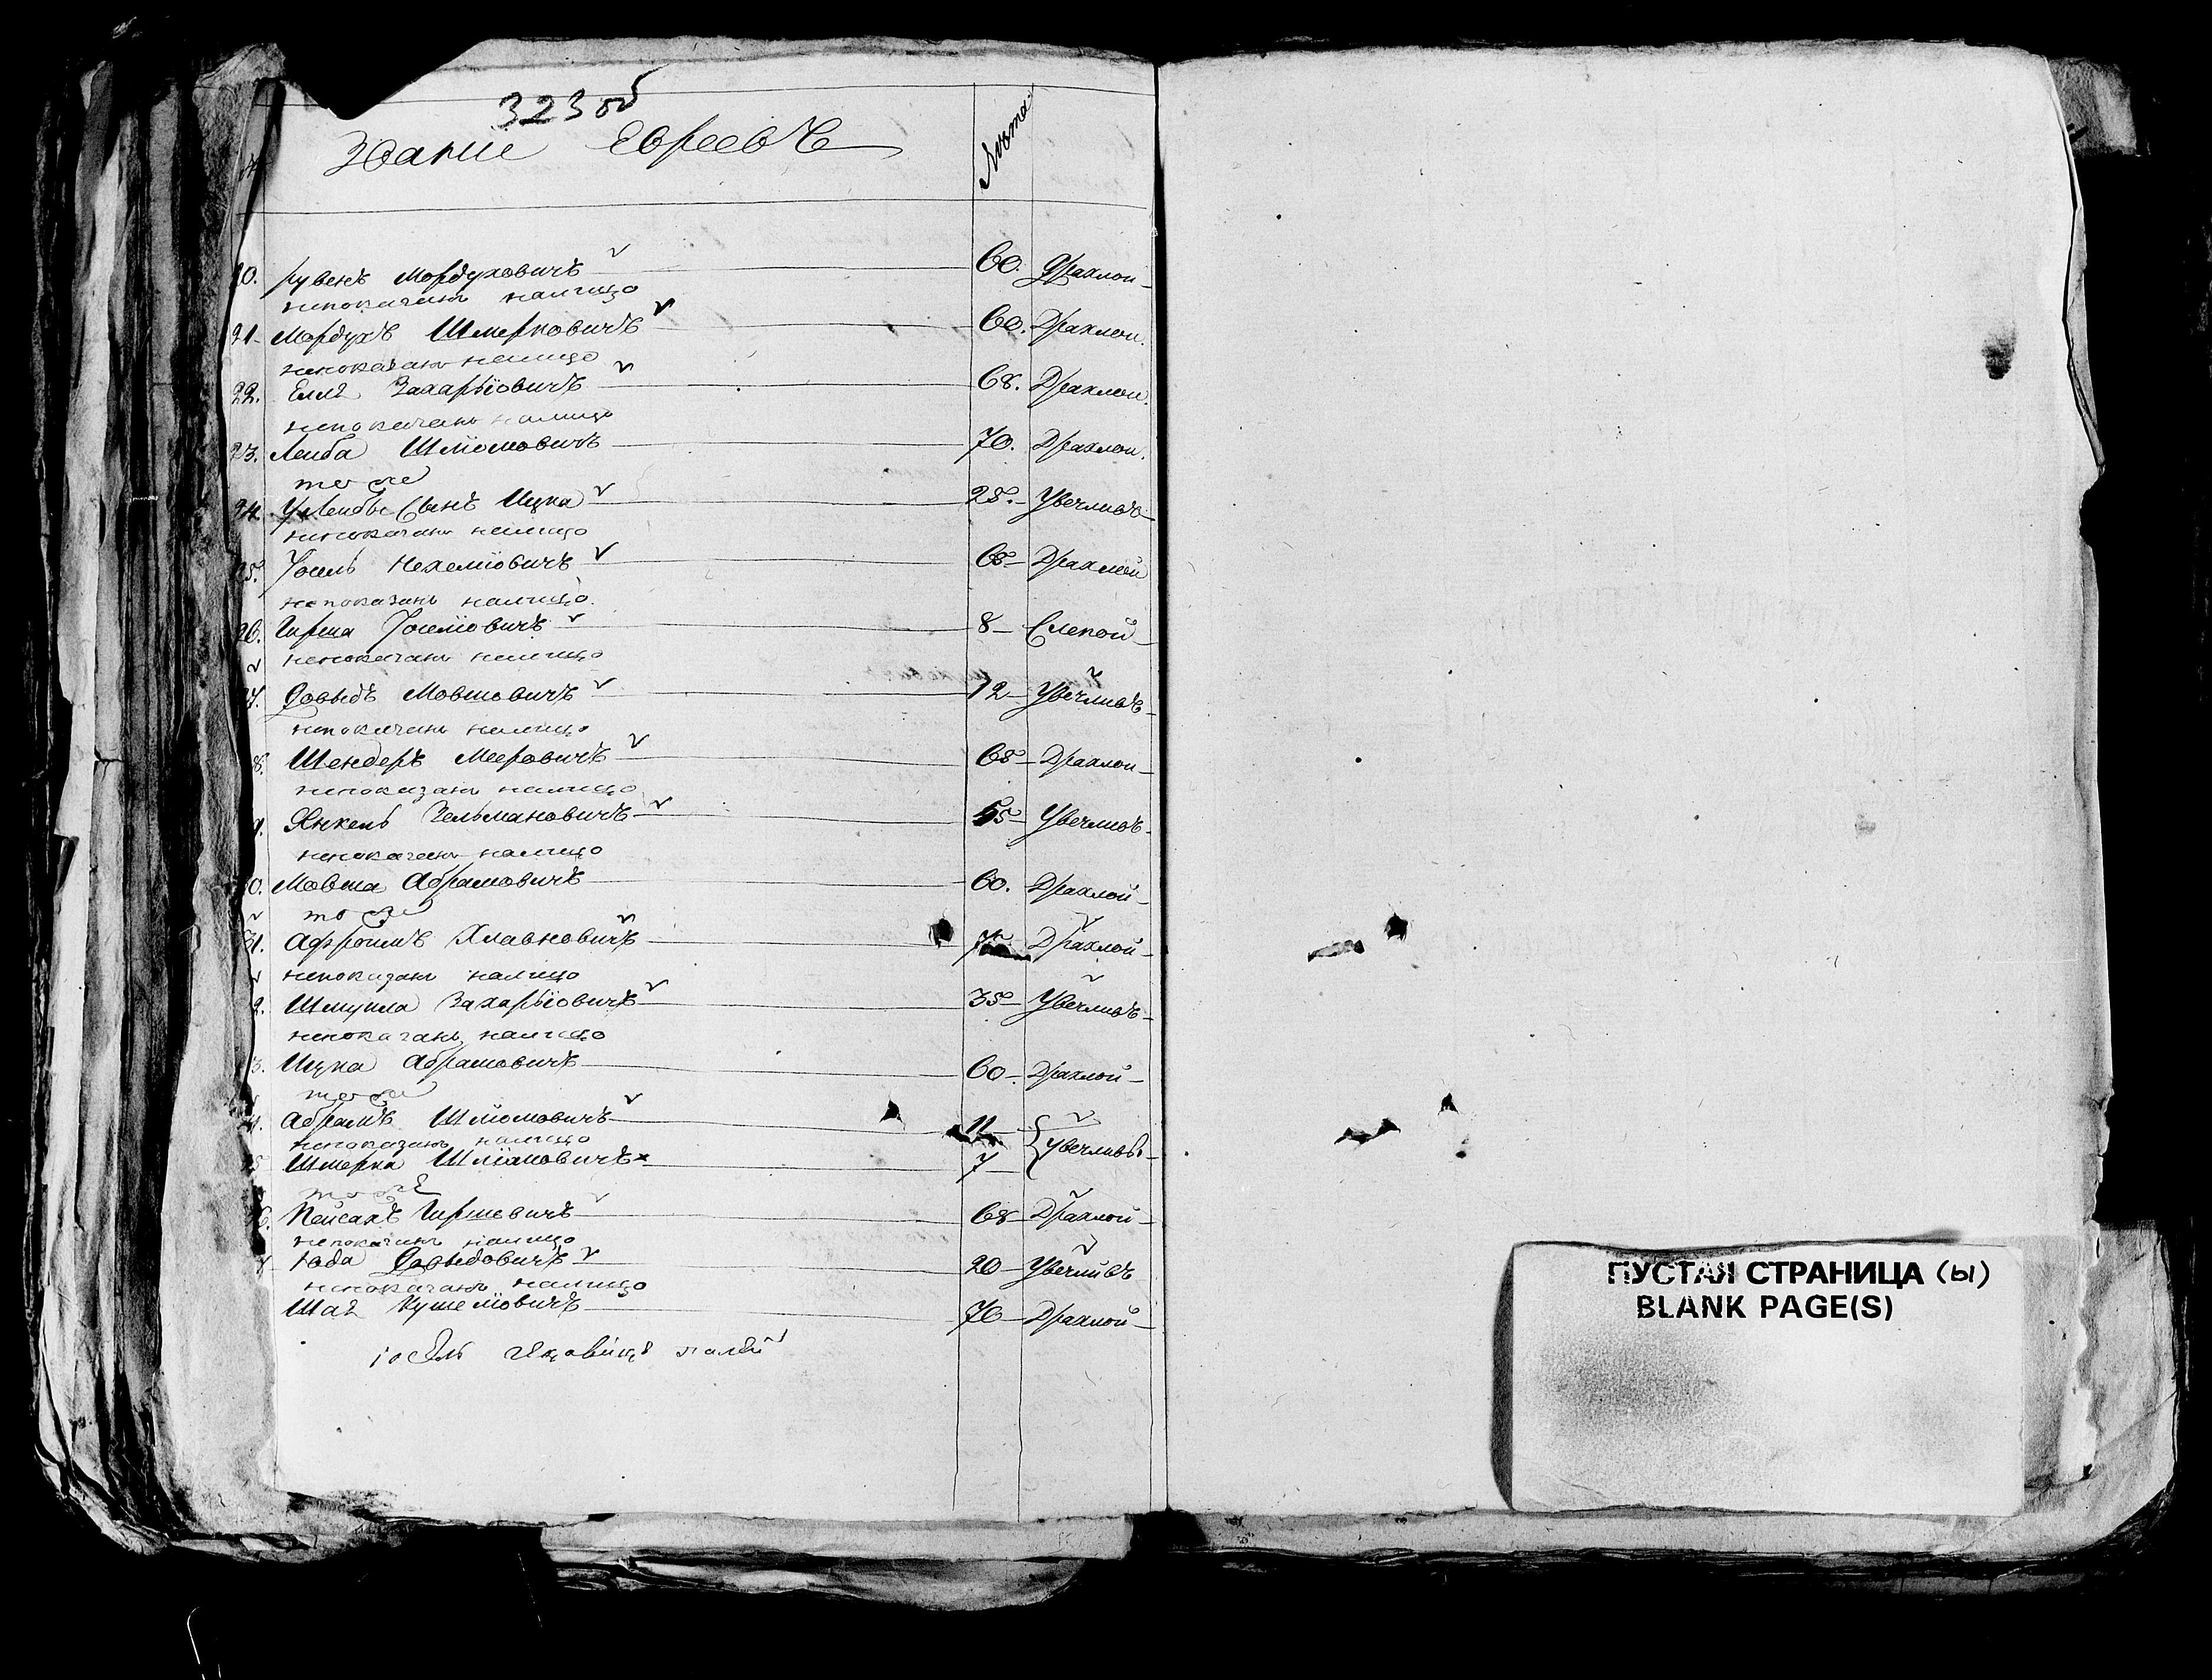 323 об
Званiе Евреевъ Лѣта
20. Рувенъ Мордуховичъ 60. Драхлой
непоказанъ налицо
21 Мордухъ Шмерковичъ 60. Драхлои.
непоказанъ налицо
22. Захарыовичъ 68. Драхлои.
непоказанъ налицо
23. Леиба Шлiомовичъ 70. Драхлои.
тоже
24. У Леибы Сынъ Ицка 25. Увечливъ
непоказанъ налицо
25. Iосель Нехемiовичъ 68 Драхлой
непоказанъ налицо
26. Гирша Iоселiовичъ 8 Слепой
непоказанъ налицо
27. Довыдъ Мовшовичъ 12 Увечливъ
непоказанъ налицо
8. Шендеръ Мееровичъ 68 Драхлои
непоказанъ налицо
9. Янкель Зельмановичъ 55 Увечливъ
непоказанъ налицо
30. Мовша Абрамовичъ 60. Драхлой
тоже
31. Афроимъ Хлавновичъ Драхлой
непоказанъ налицо
2. Шмуила Захарыовичъ 35 Увечливъ
непоказанъ налицо
3. Ицка Абрамовичъ 60 Драхлой
тоже
4. Абрамъ Шлiомовичъ 11 увечливы
непоказанъ налицо
5 Шмерка Шлiомовичъ 7
тоже
36. Пейсахъ Гиршевичъ 68 Драхлой
непоказанъ налицо
7 Юда Довыдовичъ 20 Увечливъ
непоказанъ налицо
Кушелiовичъ 70 Драхлой
ПУСТАЯ СТРАНИЦА (Ы)
BLANK PAGE(S)